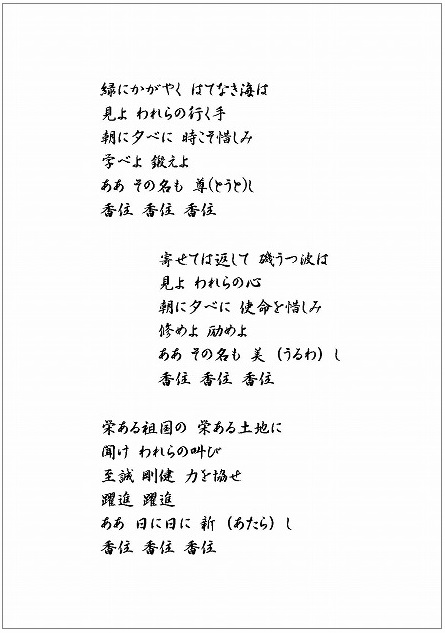 緑にかがやく はてなき海は
見よ われらの行く手
朝に夕べに 時こそ惜しみ
学べよ 鍛えよ
ああ その名も 尊(とうと)し
香住 香住 香住
寄せては返して 磯うつ波は
見よ われらの心
朝に夕べに 使命を惜しみ
修めよ 励めよ
ああ その名も 美 (うるわ) し
香住 香住 香住
栄ある祖国の 栄ある土地に
聞け われらの叫び
至誠 剛健 力を協せ
躍進 躍進
ああ 日に日に 新 (あたら) し
香住 香住 香住